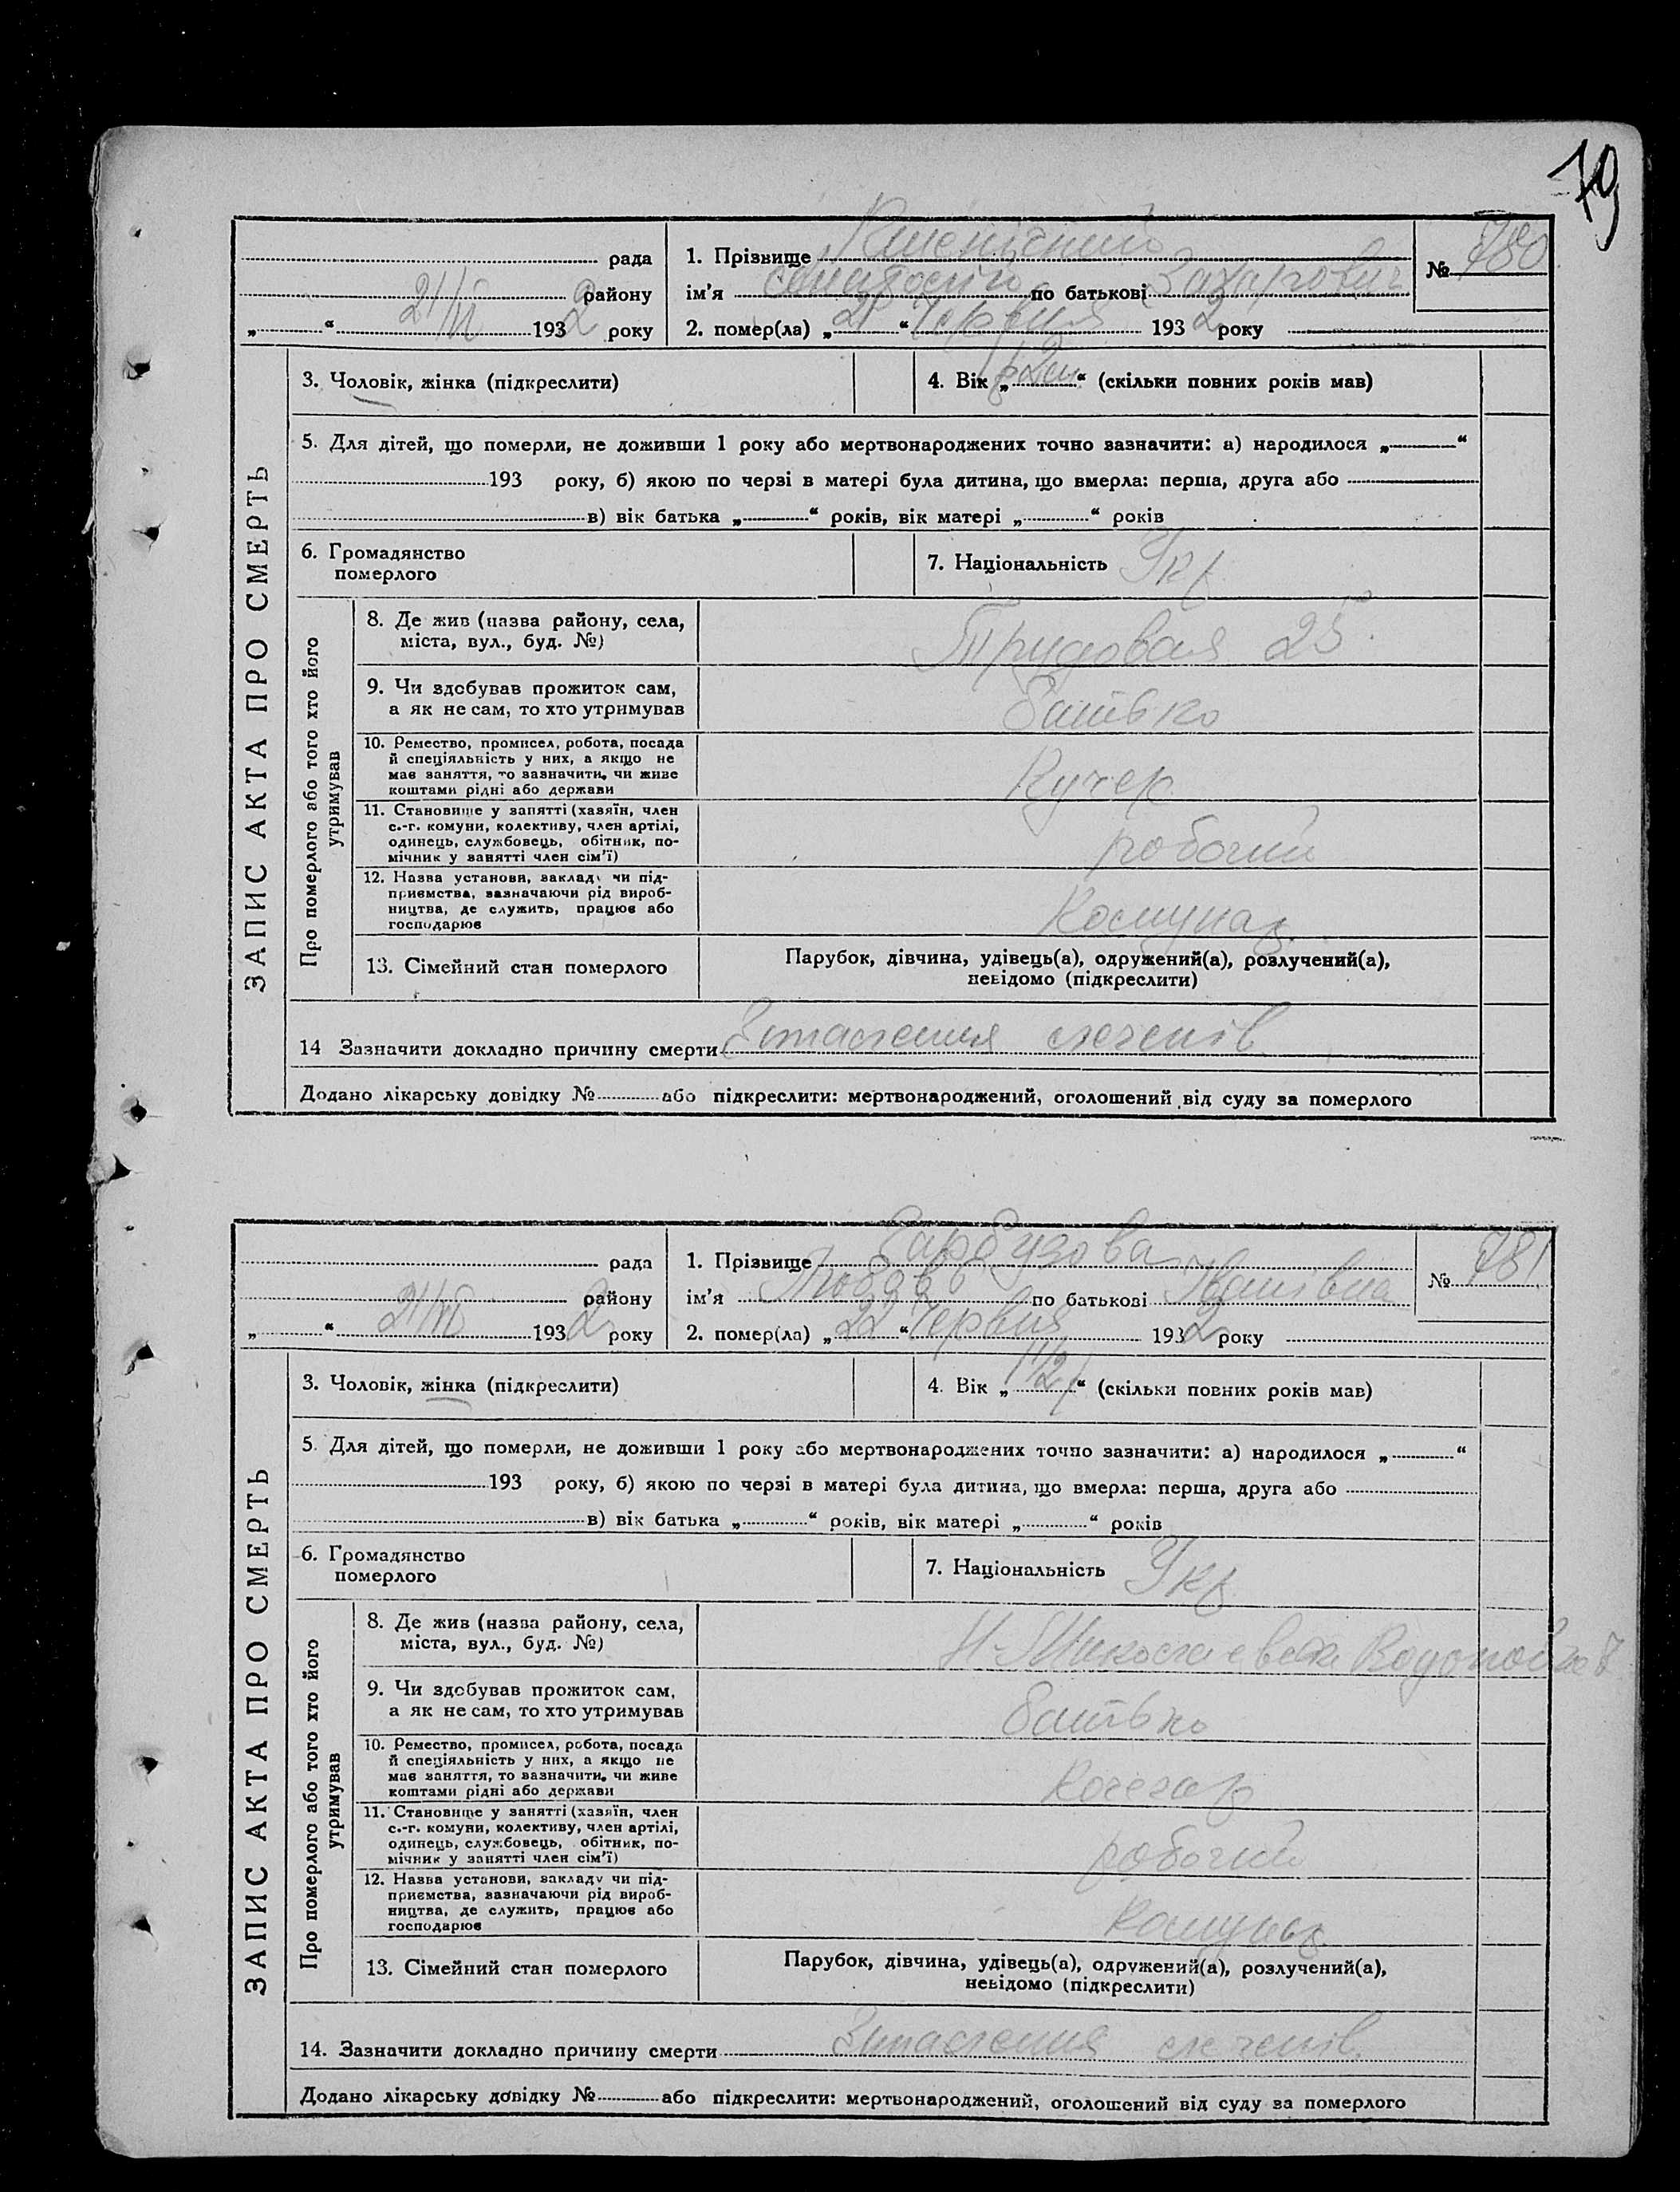 79
рада
1. Прізвище Пшенічний
№ 780
району
ім'я по батькові Захарович
„ “ 21/VI 1932 року
2. помер(ла) „21“ Червня 1932 року
ЗАПИС АКТА ПРО СМЕРТЬ
3. Чоловік, жінка (підкреслити)
4. Вік „ “ (скільки повних років мав)
5. Для дітей, що померли, не доживши 1 року або мертвонароджених точно зазначити: а) народилося „ “
193 року, б) якою по черзі в матері була дитина, що вмерла: перша, друга або
в) вік батька „ “ років, вік матері „ “ років
6. Громадянство
померлого
7. Національність Укр
Про померлого або того хто його
утримував
8. Де жив (назва району, села,
міста, вул., буд. №)
Трудовая 25
9. Чи здобував прожиток сам,
а як не сам, то хто утримував
батько
10. Ремество, промисел, робота, посада
й спеціяльність у них, а якщо не
має заняття, то зазначити, чи живе
коштами рідні або держави
Кучер
11. Становище у занятті (хазяїн, член
с.-г. комуни, колективу, член артілі,
одинець, службовець, обітник, по-
мічник у занятті член сім'ї)
робочий
12. Назва установи, закладу чи під-
приємства, зазначаючи рід вироб-
ництва, де служить, працює або
господарює
13. Сімейний стан померлого
Парубок, дівчина, удівець(а), одружений(а), розлучений(а),
невідомо (підкреслити)
14 Зазначити докладно причину смерти Зпалення легенів
Додано лікарську довідку № або підкреслити: мертвонароджений, оголошений від суду за померлого
рада
1. Прізвище Гарбузова
№ 781
району
ім'я по батькові Іванівна
„ “ 21/VI 1932 року
2. помер(ла) „22“ Червня 1932 року
ЗАПИС АКТА ПРО СМЕРТЬ
3. Чоловік, жінка (підкреслити)
4. Вік „1 1/2“ (скільки повних років мав)
5. Для дітей, що померли, не доживши 1 року або мертвонароджених точно зазначити: а) народилося „ “
193 року, б) якою по черзі в матері була дитина, що вмерла: перша, друга або
в) вік батька „ “ років, вік матері „ “ років
6. Громадянство
померлого
7. Національність Укр
Про померлого або того хто його
утримував
8. Де жив (назва району, села,
міста, вул., буд. №)
Н-Миколаевка
9. Чи здобував прожиток сам,
а як не сам, то хто утримував
батько
10. Ремество, промисел, робота, посада
й спеціяльність у них, а якщо не
має заняття, то зазначити, чи живе
коштами рідні або держави
Кочегар
11. Становище у занятті (хазяїн, член
с.-г. комуни, колективу, член артілі,
одинець, службовець, обітник, по-
мічник у занятті член сім'ї)
робочий
12. Назва установи, закладу чи під-
приємства, зазначаючи рід вироб-
ництва, де служить, працює або
господарює
13. Сімейний стан померлого
Парубок, дівчина, удівець(а), одружений(а), розлучений(а),
невідомо (підкреслити)
14. Зазначити докладно причину смерти Зпалення легенів
Додано лікарську довідку № або підкреслити: мертвонароджений, оголошений від суду за померлого